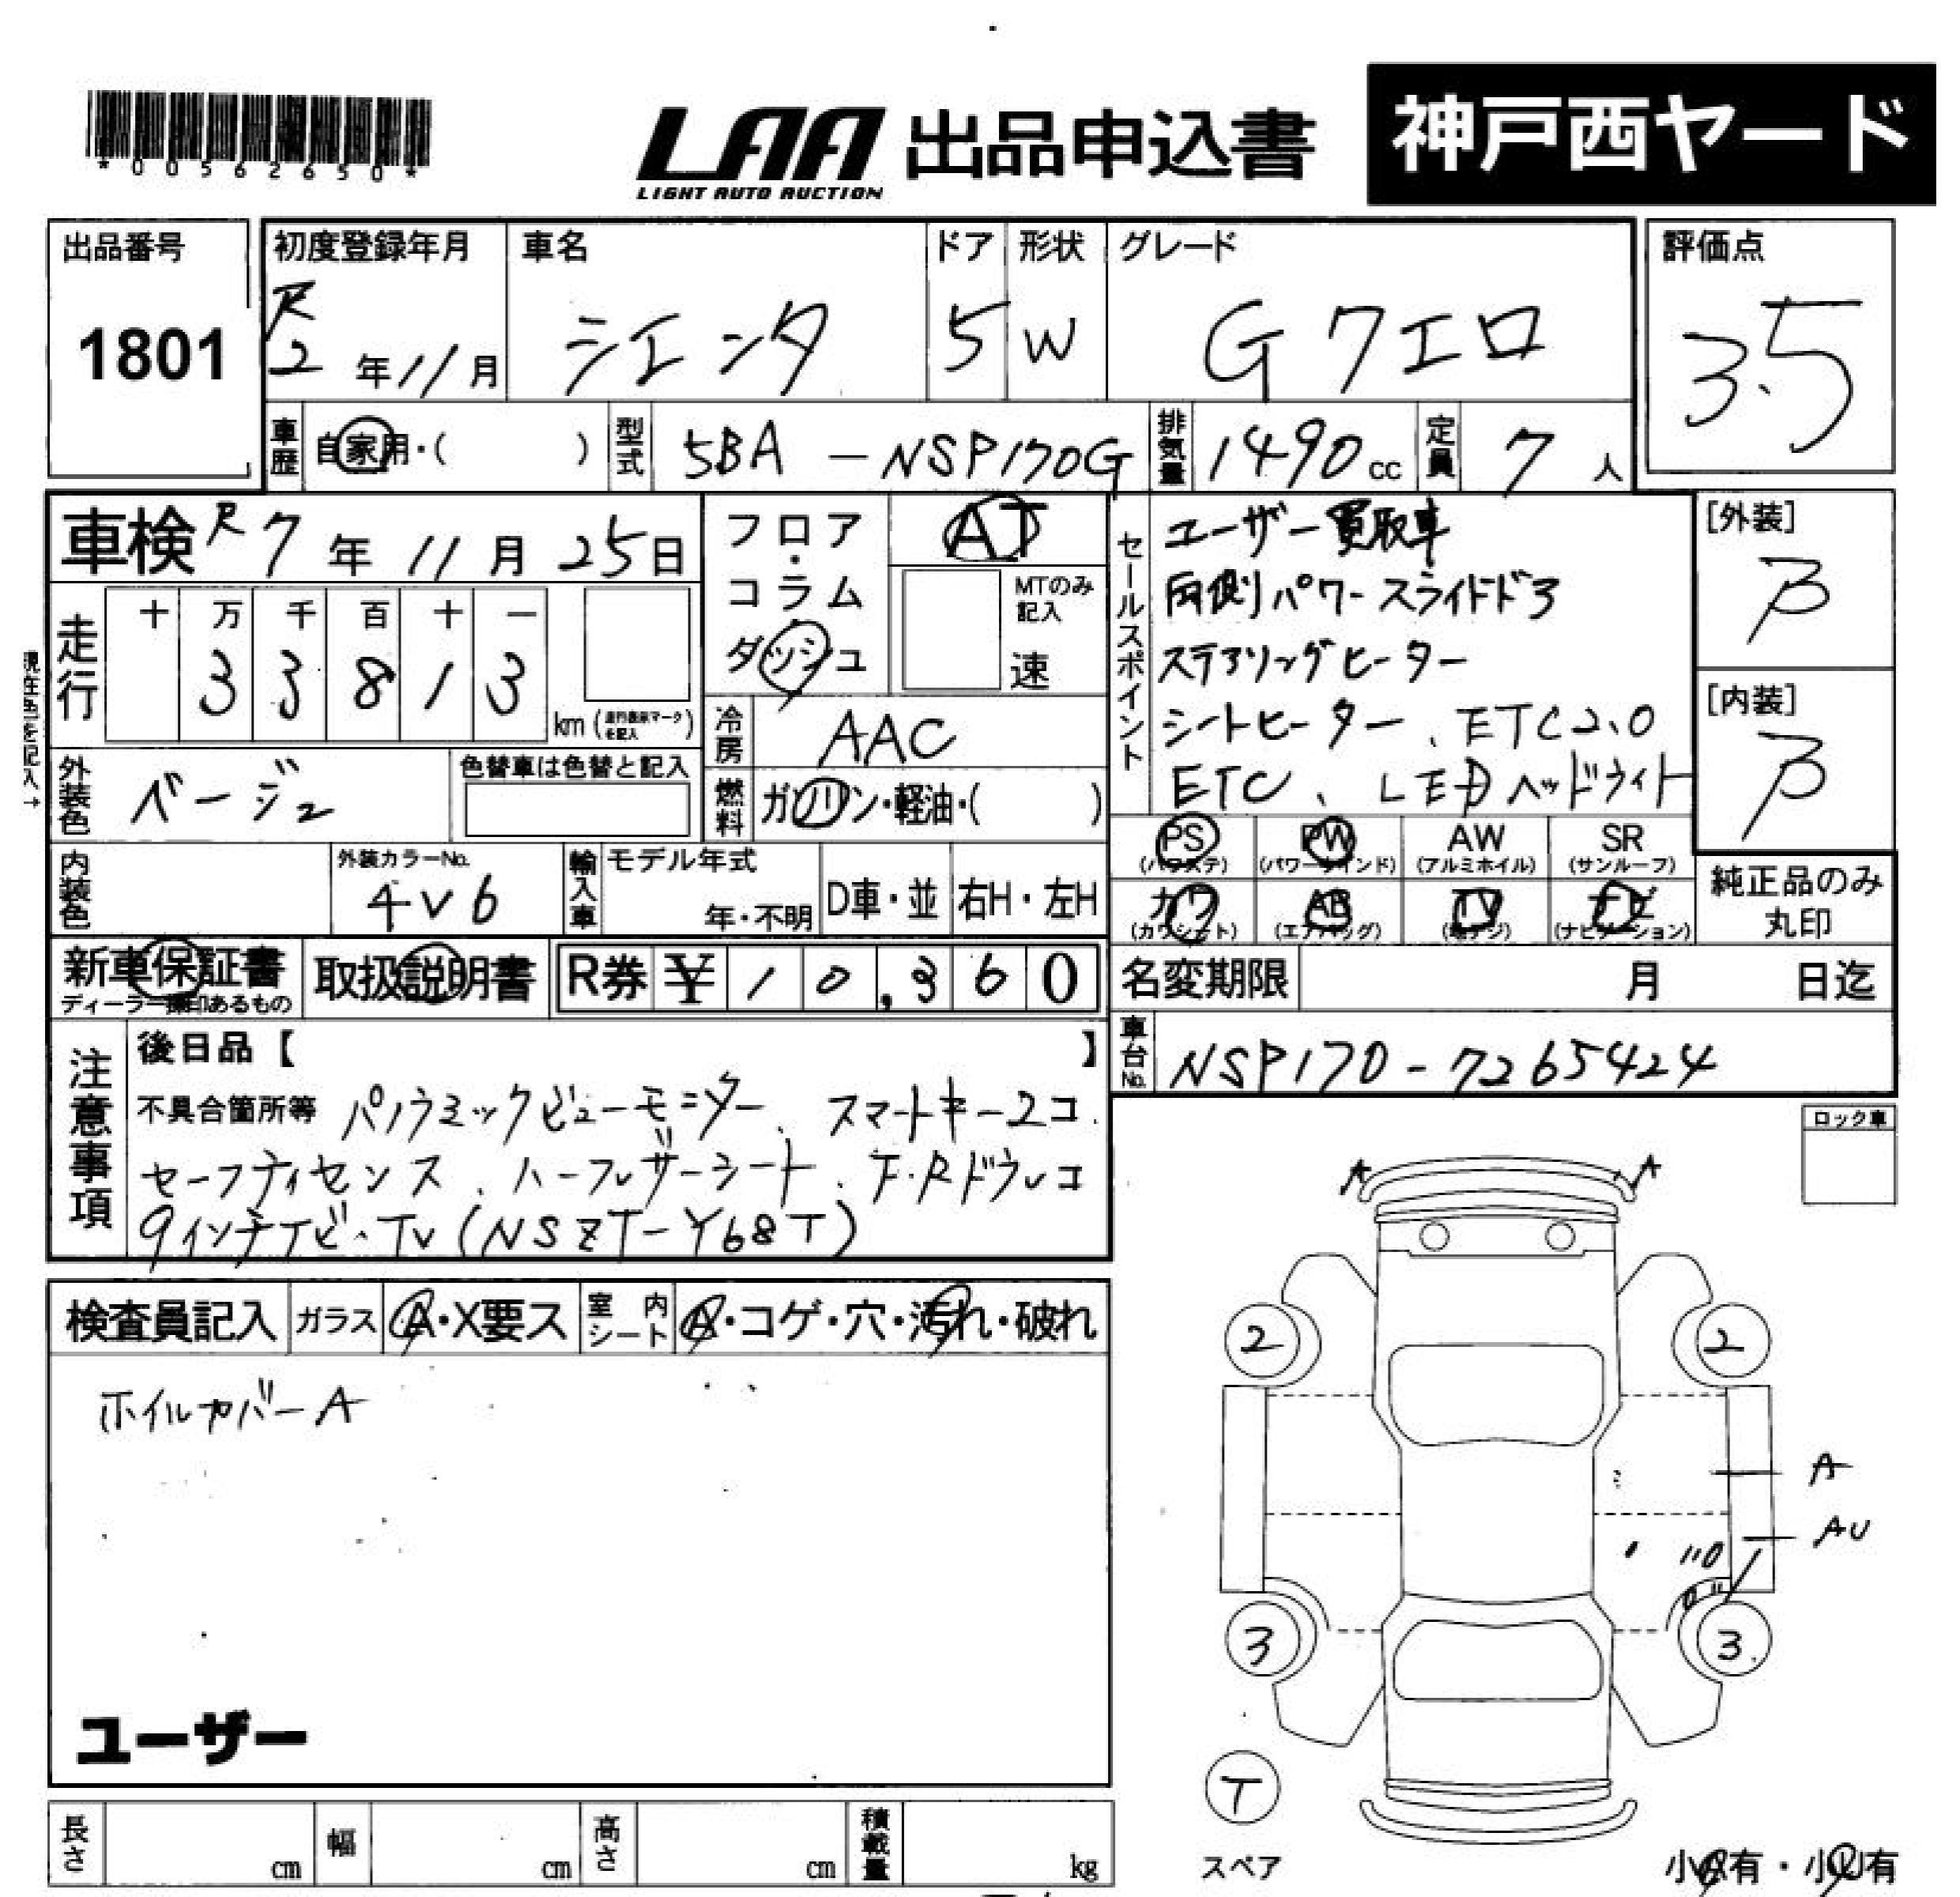 *00562650*
LAA 出品申込書 神戸西ヤード
LIGHT AUTO AUCTION
出品番号 1801
初度登録年月 R2年11月
車名 シエンタ
ドア 5
形状 W
グレード Gクエロ
評価点 3.5
車歴 自家用・( )
型式 5BA-NSP170G
排気量 1490cc
定員 7人
車検 R7年11月25日
走行 十万千百十一
33813 km (走行表示マークを記入)
現在色を記入→
外装色 ベージュ
色替車は色替と記入
内装色
外装カラーNo. 4V6
輸入車 モデル年式 年・不明 D車・並 右H・左H
フロア・コラム・ダッシュ
AT
MTのみ記入 速
冷房 AAC
燃料 ガソリン・軽油・( )
セールスポイント
ユーザー買取車
両側パワースライドドア
ステアリングヒーター
シートヒーター、ETC2.0
ETC、LEDヘッドライト
[外装] B
[内装] B
PS (パワステ) PW (パワーウインド) AW (アルミホイル) SR (サンルーフ)
カワ (カワシート) AB (エアバッグ) TV (地デジ) ナビ (ナビゲーション)
純正品のみ丸印
新車保証書 ディーラー捺印あるもの
取扱説明書
R券 ¥10,360
名変期限 月 日迄
車台No. NSP170-7265424
注意事項
後日品【 】
不具合箇所等 パノラミックビューモニター、スマートキー2コ.
セーフティセンス、ハーフレザーシート、F・Rドラレコ
9インチナビ・TV(NSZT-Y68T)
ロック車
検査員記入 ガラス A・X要ス 室内シート A・コゲ・穴・汚れ・破れ
ホイルカバーA
ユーザー
A A
2 2
A
AU
3 3
T
スペア
小A有・小U有
長さ cm 幅 cm 高さ cm 積載量 kg